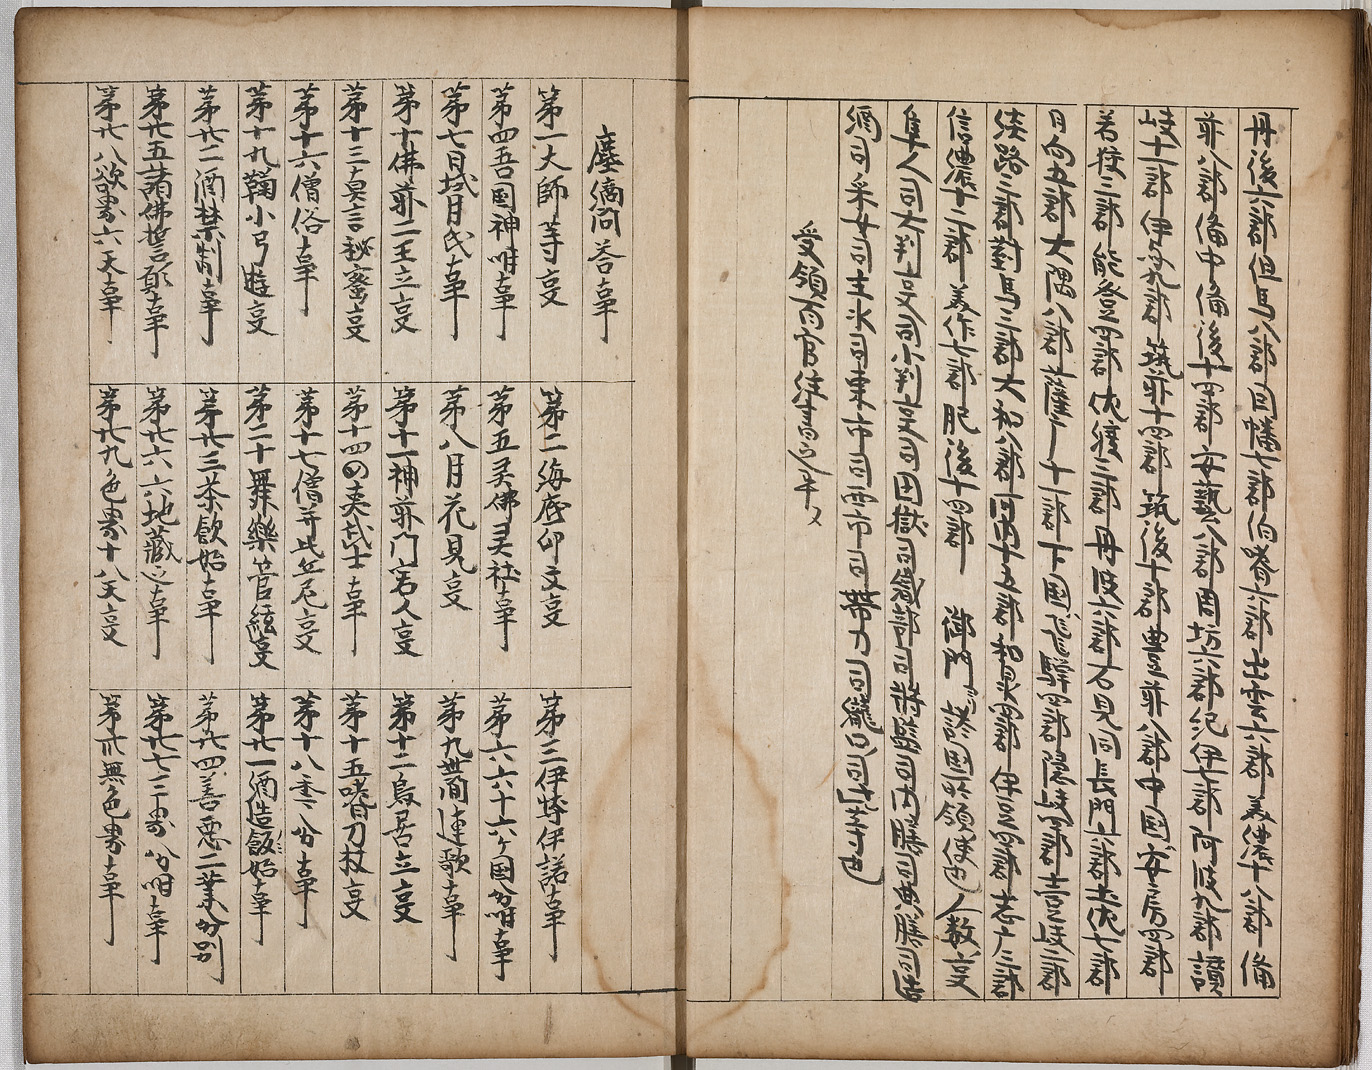 丹後六郡但馬八郡因幡七郡伯嗜六郡出雲六郡美濃十八郡備
前八郡備中備後十四郡安藝八郡周坊六郡紀伊七郡阿波九郡讃
岐十一郡伊与九郡筑前十四郡筑後十郡豊前八郡中国安房四郡
若狭三郡能登四郡佐渡三郡丹波六郡石見同長門六郡土佐七郡
日向五郡大隅八郡薩广十一郡下国飛騨四郡隠岐四郡壱岐二郡
淡路二郡對馬二郡大和八郡河内十五郡和泉四郡伊豆四郡志广二郡
信濃十二郡美作七郡肥後十四郡 御門諸国所領使也人数㕝
隼人司大判㕝司小判㕝司囚獄司織部司将監司内膳司典膳司造
酒司采女司主水司東市司西市司帯刀司
受領百官往青之年
塵滴问荅㕝
第一大師等㕝
第二海底印文㕝
第三伊弉伊諾㕝
第四吾国神㕝
第五天佛天社㕝
第六六十六ケ国分㕝
第七日域日氏㕝
第八月花見㕝
第九連歌㕝
第十佛前二王立㕝
第十一神前门客人㕝
第十二鳥居立㕝
第十三真言秘密㕝
第十四武士㕝
第十五刀杖㕝
第十六僧俗㕝
第十七僧并比丘尼㕝
第十八分㕝
第十九鞠小弓㕝
第二十舞樂管絃㕝
第廿一酒造飯始㕝
第廿二酒禁制㕝
第廿三茶飲始㕝
第廿四善悪二業分別
第廿五諸佛誓願㕝
第廿六六地蔵之㕝
第廿七三界分㕝
第廿八欲界六天㕝
第廿九色界十八天㕝
第卅無色界㕝